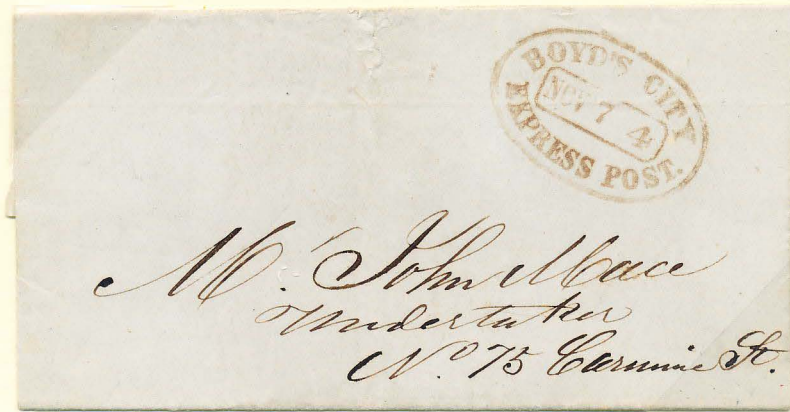 BOYD'S CITY
NOV 7 4
EXPRESS POST.
Mr. John Mace
Undertaker
No. 75 Carmine St.